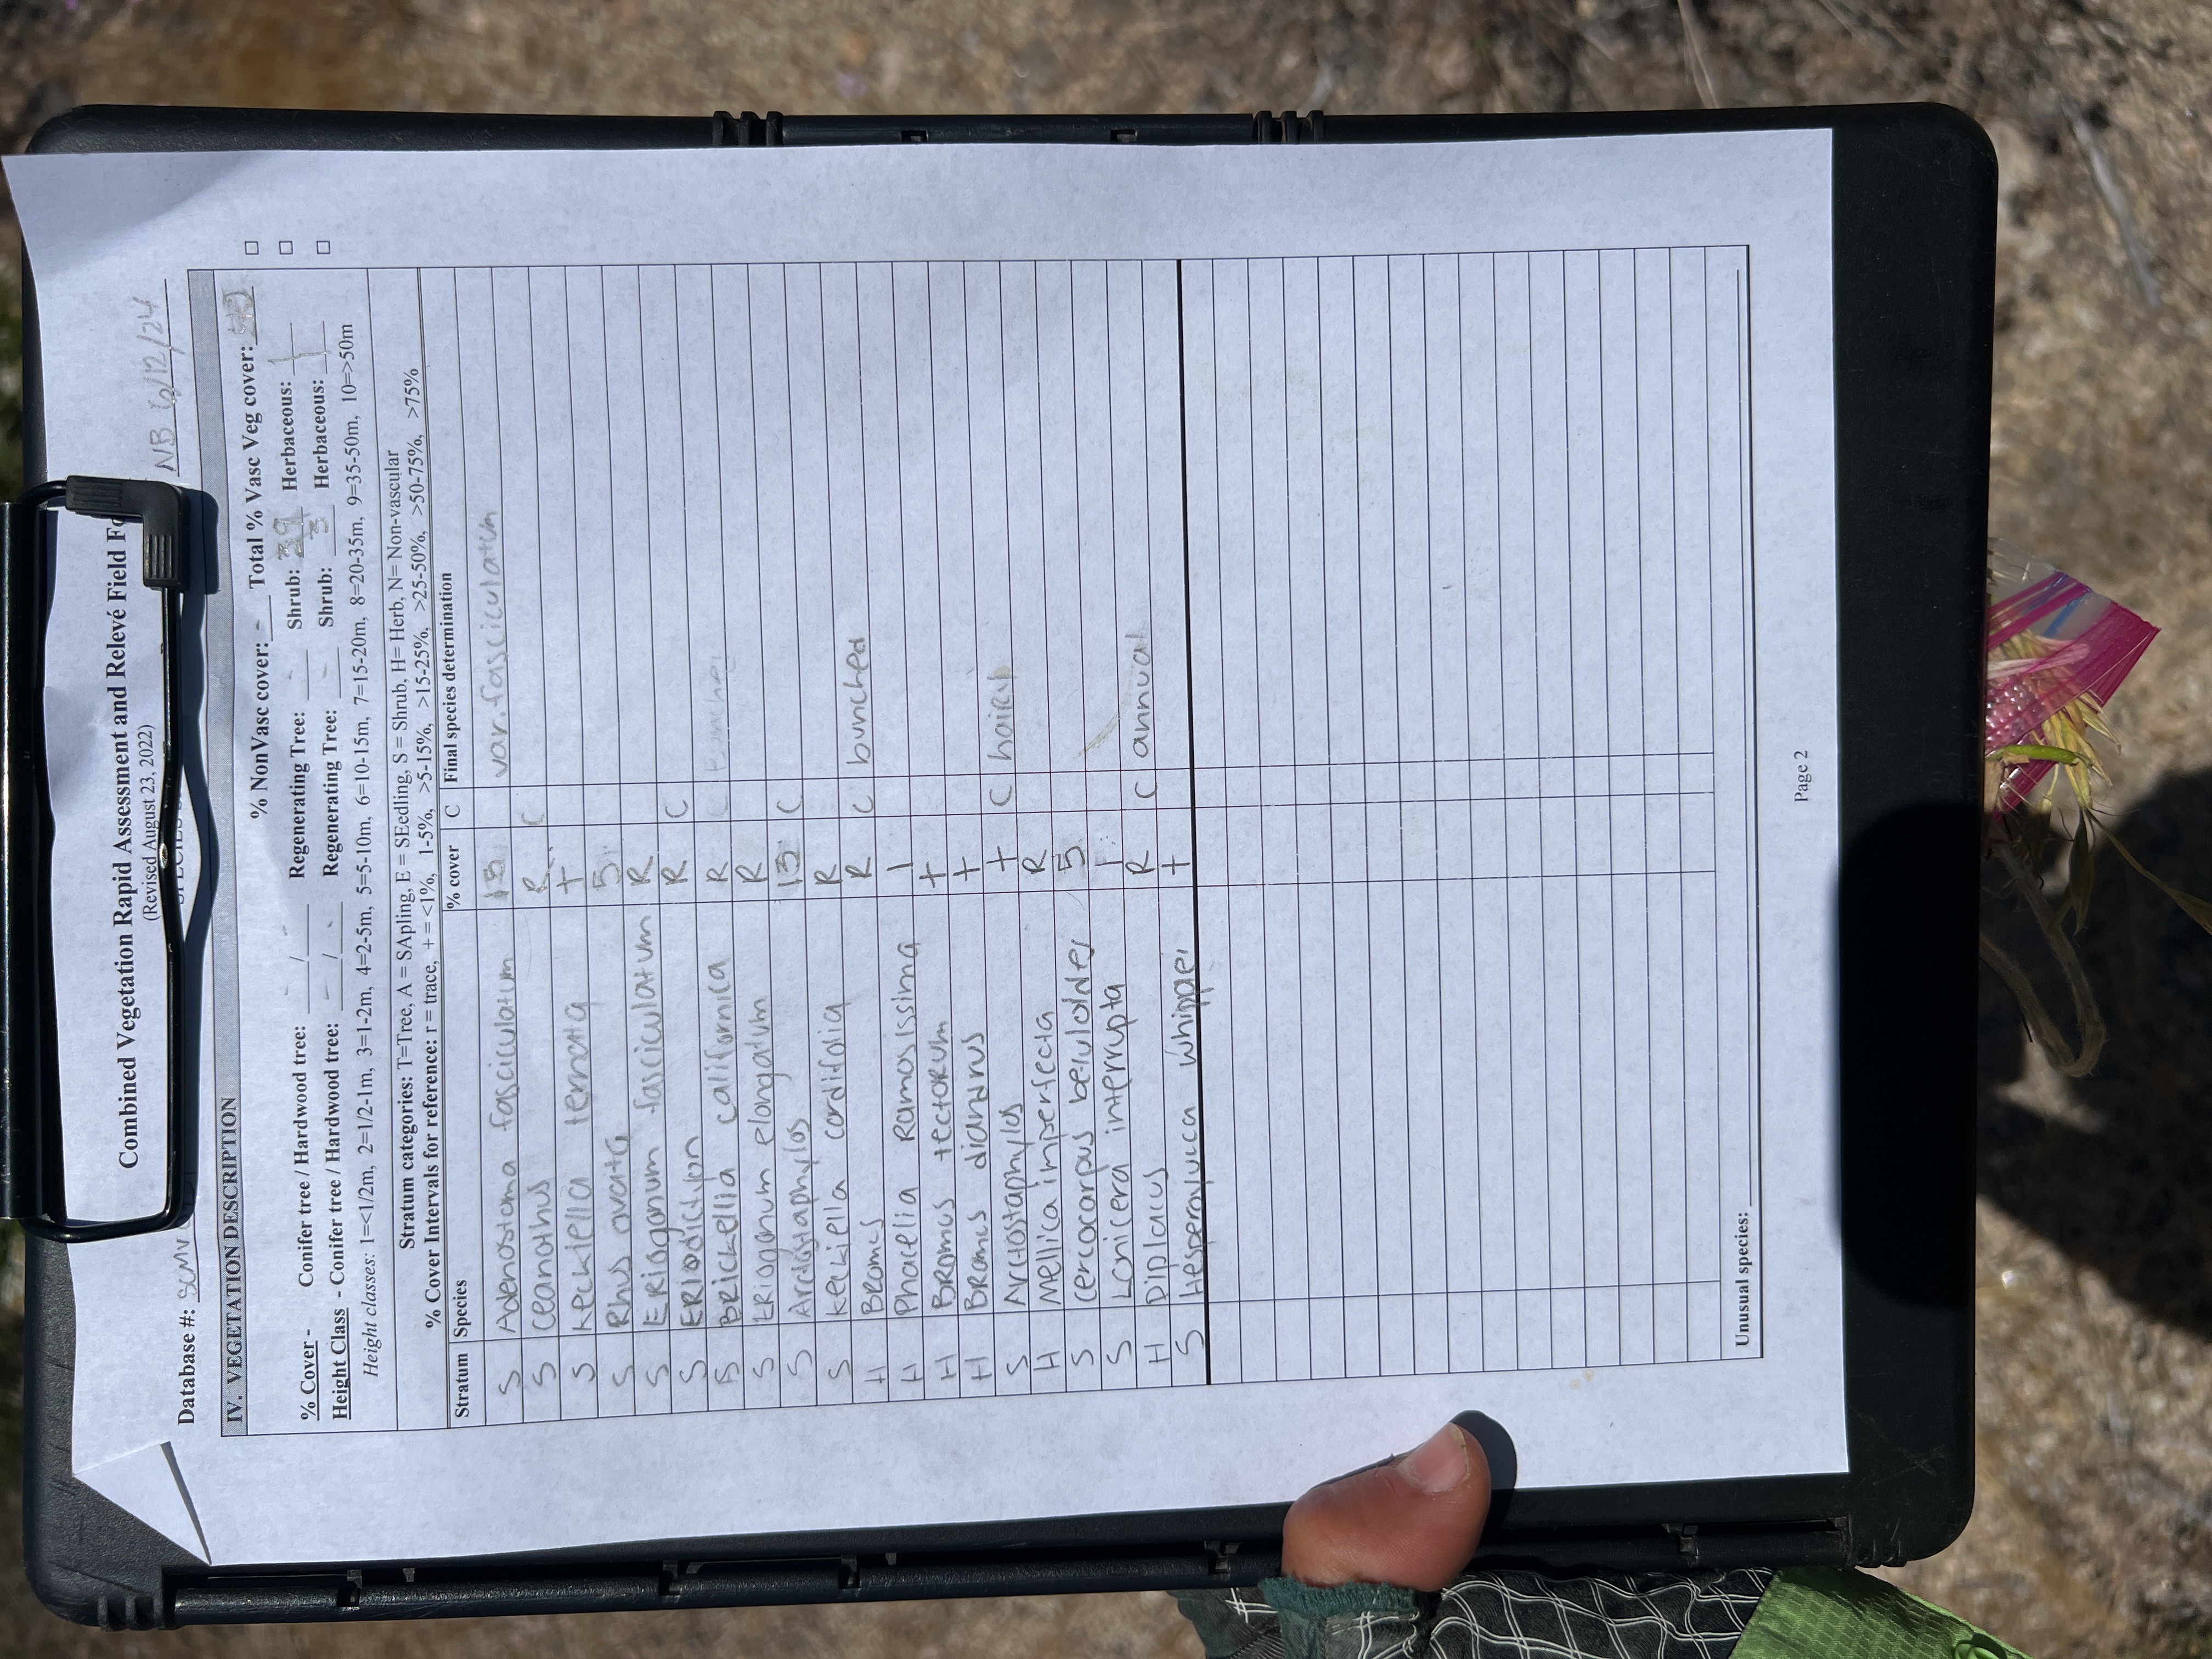 Combined Vegetation Rapid Assessment and Relevé Field Fo
(Revised August 23, 2022)
Database #: SCMV NB 6/12/24
IV. VEGETATION DESCRIPTION
% NonVasc cover: - Total % Vasc Veg cover:
% Cover - Conifer tree / Hardwood tree: - / - Regenerating Tree: - Shrub: 39 Herbaceous: 1
Height Class - Conifer tree / Hardwood tree: - / - Regenerating Tree: - Shrub: 3 Herbaceous: 1
Height classes: 1=<1/2m, 2=1/2-1m, 3=1-2m, 4=2-5m, 5=5-10m, 6=10-15m, 7=15-20m, 8=20-35m, 9=35-50m, 10=>50m
Stratum categories: T=Tree, A = SApling, E = SEedling, S = Shrub, H= Herb, N= Non-vascular
% Cover Intervals for reference: r = trace, + = <1%, 1-5%, >5-15%, >15-25%, >25-50%, >50-75%, >75%
Stratum Species % cover C Final species determination
S Adenostoma fasciculatum 15 var. fasciculatum
S Ceanothus R C
S Keckiella ternata +
S Rhus ovata 5
S Eriogonum fasciculatum R
S Eriodictyon R C
Brickellia californica R C
S Eriogonum elongatum R
S Arctostaphylos 15 C
S Keckiella cordifolia R
H Bromus R C bunched
H Phacelia Ramosissima 1
H Bromus tectorum +
H Bromus diandrus +
S Arctostaphylos + C hairy
H Mellica imperfecta R
S Cercocarpus betuloides 5
S Lonicera interrupta 1
H Diplacus R C annual
S Hesperoyucca whipplei +
Unusual species:
Page 2